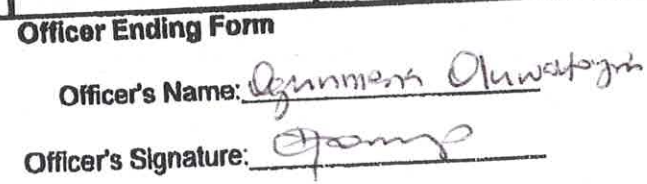 Officer Ending Form
Officer's Name: Ogunmesi
Officer's Signature: